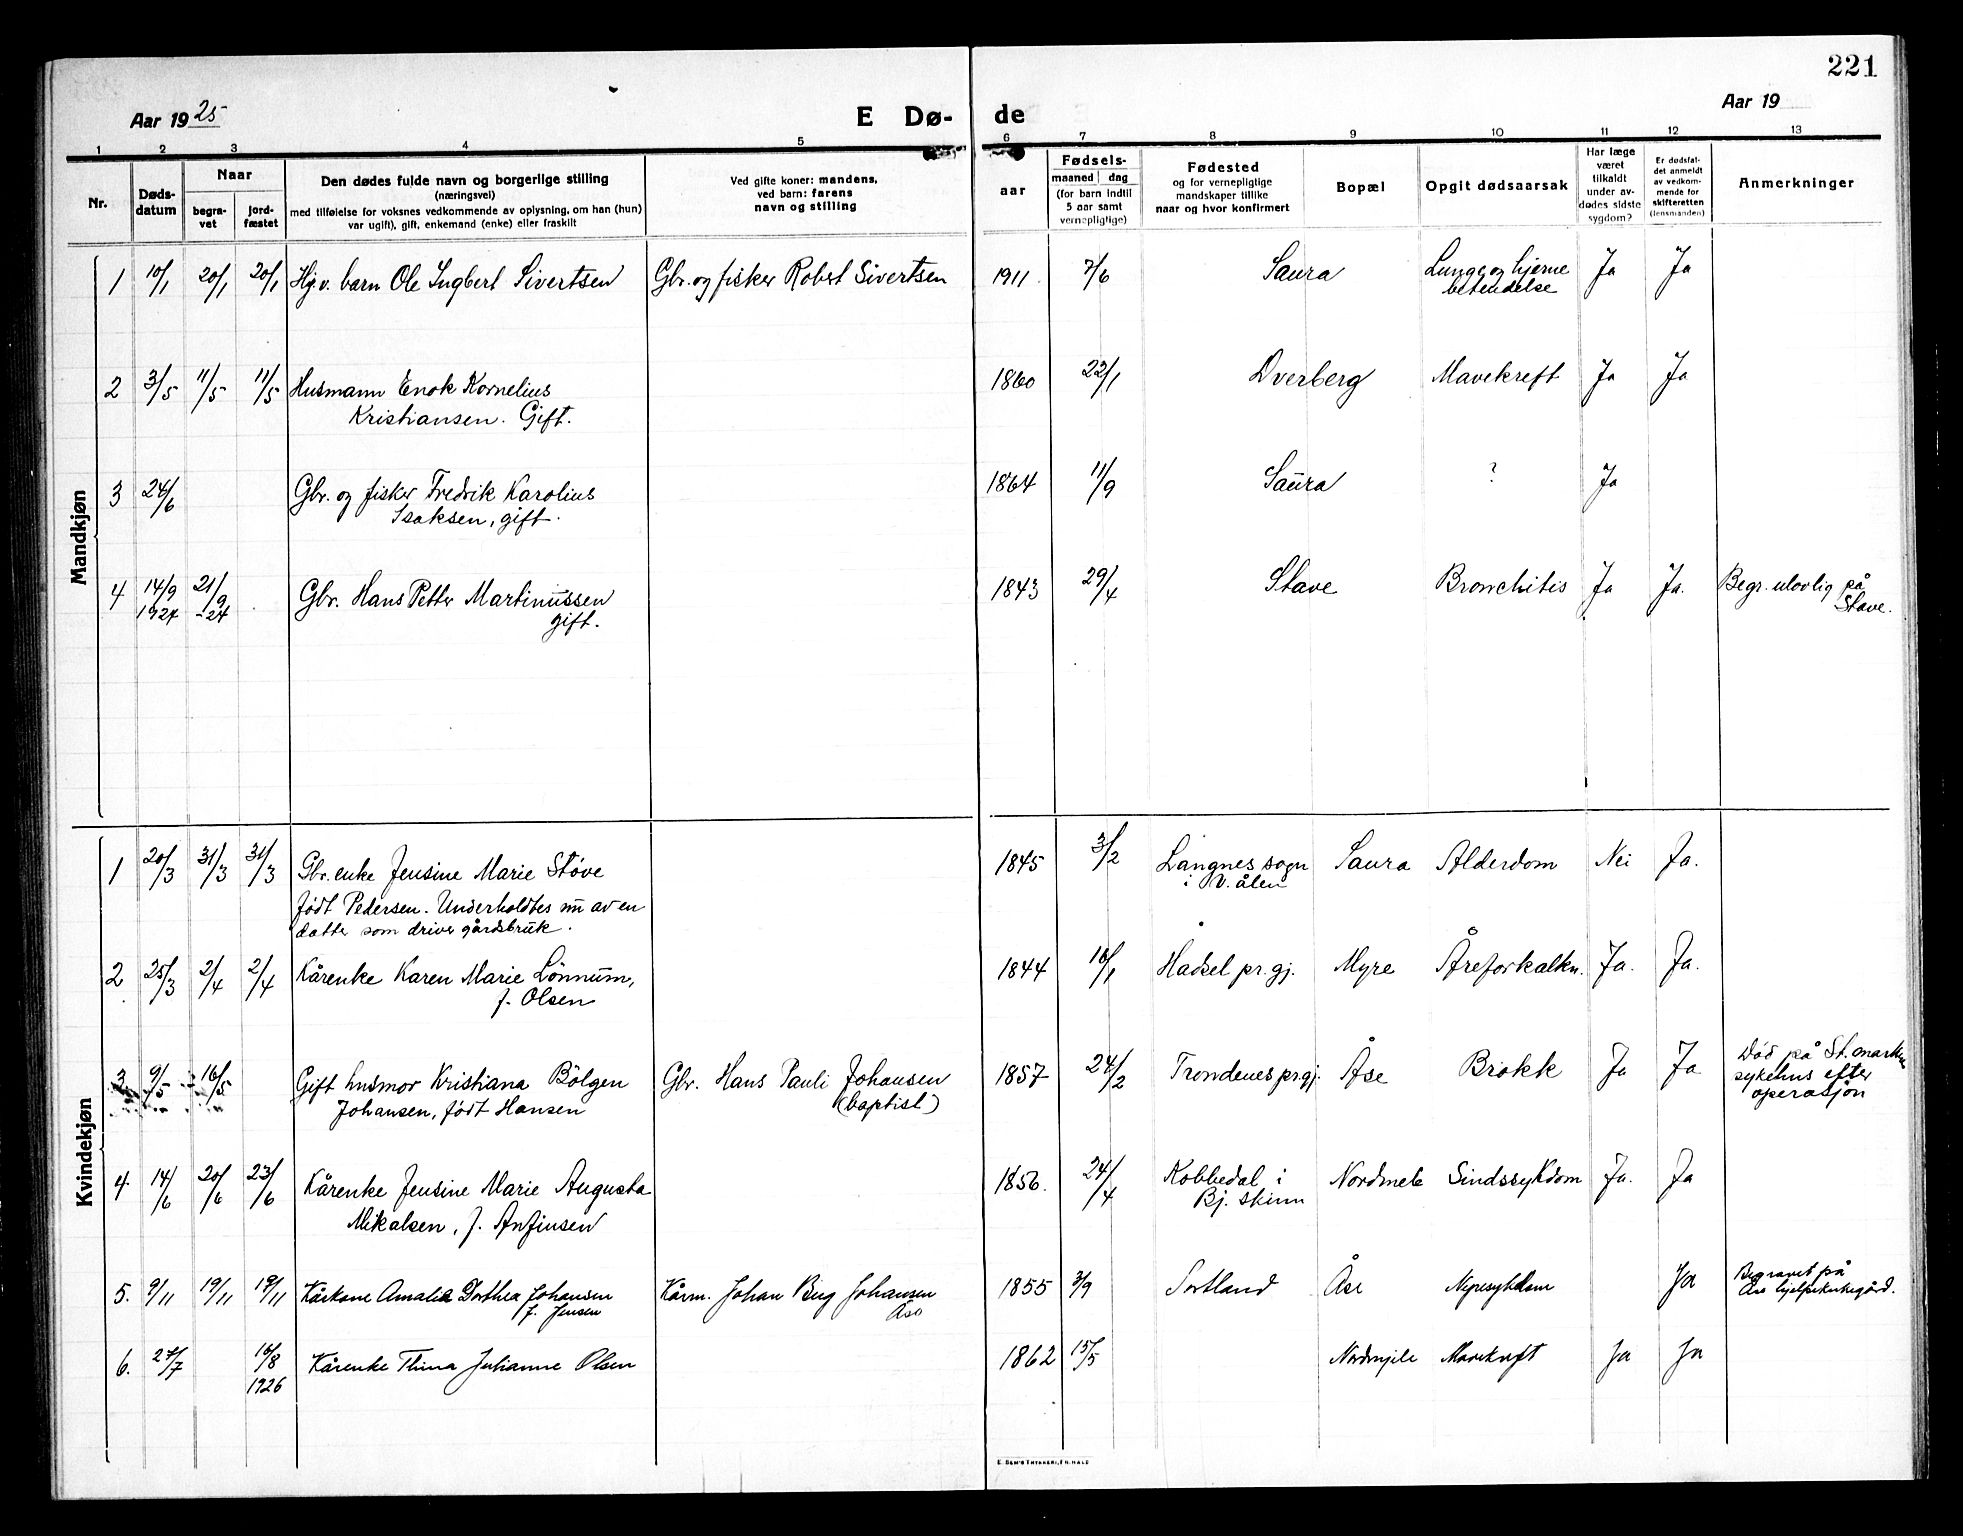 221
Aar 1925
E Dø-
de
Aar 19
1 2 3 4 5 6 7 8 9 10 11 12 13
Nr.
Døds-
datum
Naar
begra-
vet
jord-
fæstet
Den dødes fulde navn og borgerlige stilling
(næringsvei)
med tilføielse for voksnes vedkommende av oplysning, om han (hun)
var ugift), gift, enkemand (enke) eller fraskilt
Ved gifte koner: mandens,
ved barn: farens
navn og stilling
aar
Fødsels-
maaned dag
(for barn indtil
5 aar samt
vernepligtige)
Fødested
og for vernepligtige
mandskaper tillike
naar og hvor konfirmert
Bopæl
Opgit dødsaarsak
Har læge
været
tilkaldt
under av-
dødes sidste
sygdom?
Er dødsfal-
det anmeldt
av vedkom-
mende for
skifteretten
(lensmanden)
Anmerkninger
Mandkjøn
1 10/1 20/1 20/1 Hjv. barn Ole Ingbert Sivertsen Gbr. og fisker Robert Sivertsen 1911 7/6 Saura Lunge og hjerne Ja Ja
betendelse
2 3/5 11/5 11/5 Husmann Enok Kornelius 1860 22/1 Dverberg Mavekreft Ja Ja
Kristiansen. Gift.
3 24/6 Gbr. og fisker Fredrik Karolius 1864 11/9 Saura ? Ja
Isaksen, gift.
4 14/9 21/9 Gbr. Hans Petter Martinussen 1843 29/4 Stave Bronchitis Ja Ja. Begr. ulovlig på
1924 -24 gift. Stave.
Kvindekjøn
1 20/3 31/3 31/3 Gbr. enke Jensine Marie Støve 1845 3/2 Langnes sogn Saura Alderdom Nei Ja.
i V. ålen
født Pedersen. Underholdtes nu av en
datter som driver gårdsbruk.
2 25/3 2/4 2/4 Kårenke Karen Marie Lønnum, 1844 16/1 Hadsel pr.gj. Myre Åreforkalkn. Ja. Ja.
f. Olsen
3 9/5 16/5 Gift husmor Kristiana Bølgen Gbr. Hans Pauli Johansen 1857 24/2 Trondenes pr.gj. Åse Brokk Ja Ja Død på St.mark
Johansen, født Hansen (baptist) sykehus efter
operasjon
4 14/6 20/6 23/6 Kårenke Jensine Marie Augusta 1856. 24/4 Kobbedal i Nordmele Sindssykdom Ja. Ja
Mikalsen, f. Anfinsen Bj. skinn
5. 9/11 19/11 19/11 Kårkone Amalie Dorthea Johansen Kårm. Johan Big Johansen 1855 3/9 Sortland Åse Nyresykdom Ja Begravet på
f. Jensen Åse Åse hjelpekirkegård.
6. 27/7 16/8 Kårenke Thina Julianne Olsen 1862 15/5 Nordmjele Mavekreft Ja Ja
1926